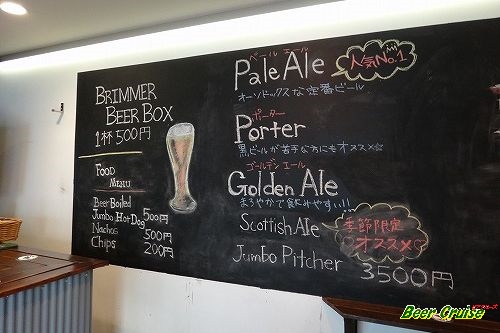 BRIMMER
BEER BOX
1杯500円
FOOD
MENU
Beer Boiled
Jumbo Hot Dog 500円
Nachos 500円
Chips 200円
ペールエール
Pale Ale
人気No.1
オーソドックスな定番ビール
ポーター
Porter
黒ビールが苦手な方にもオススメ☆
ゴールデンエール
Golden Ale
まろやかで飲みやすい!!!
Scottish Ale
季節限定
オススメ☆
Jumbo Pitcher 3500円
Beer Cruise